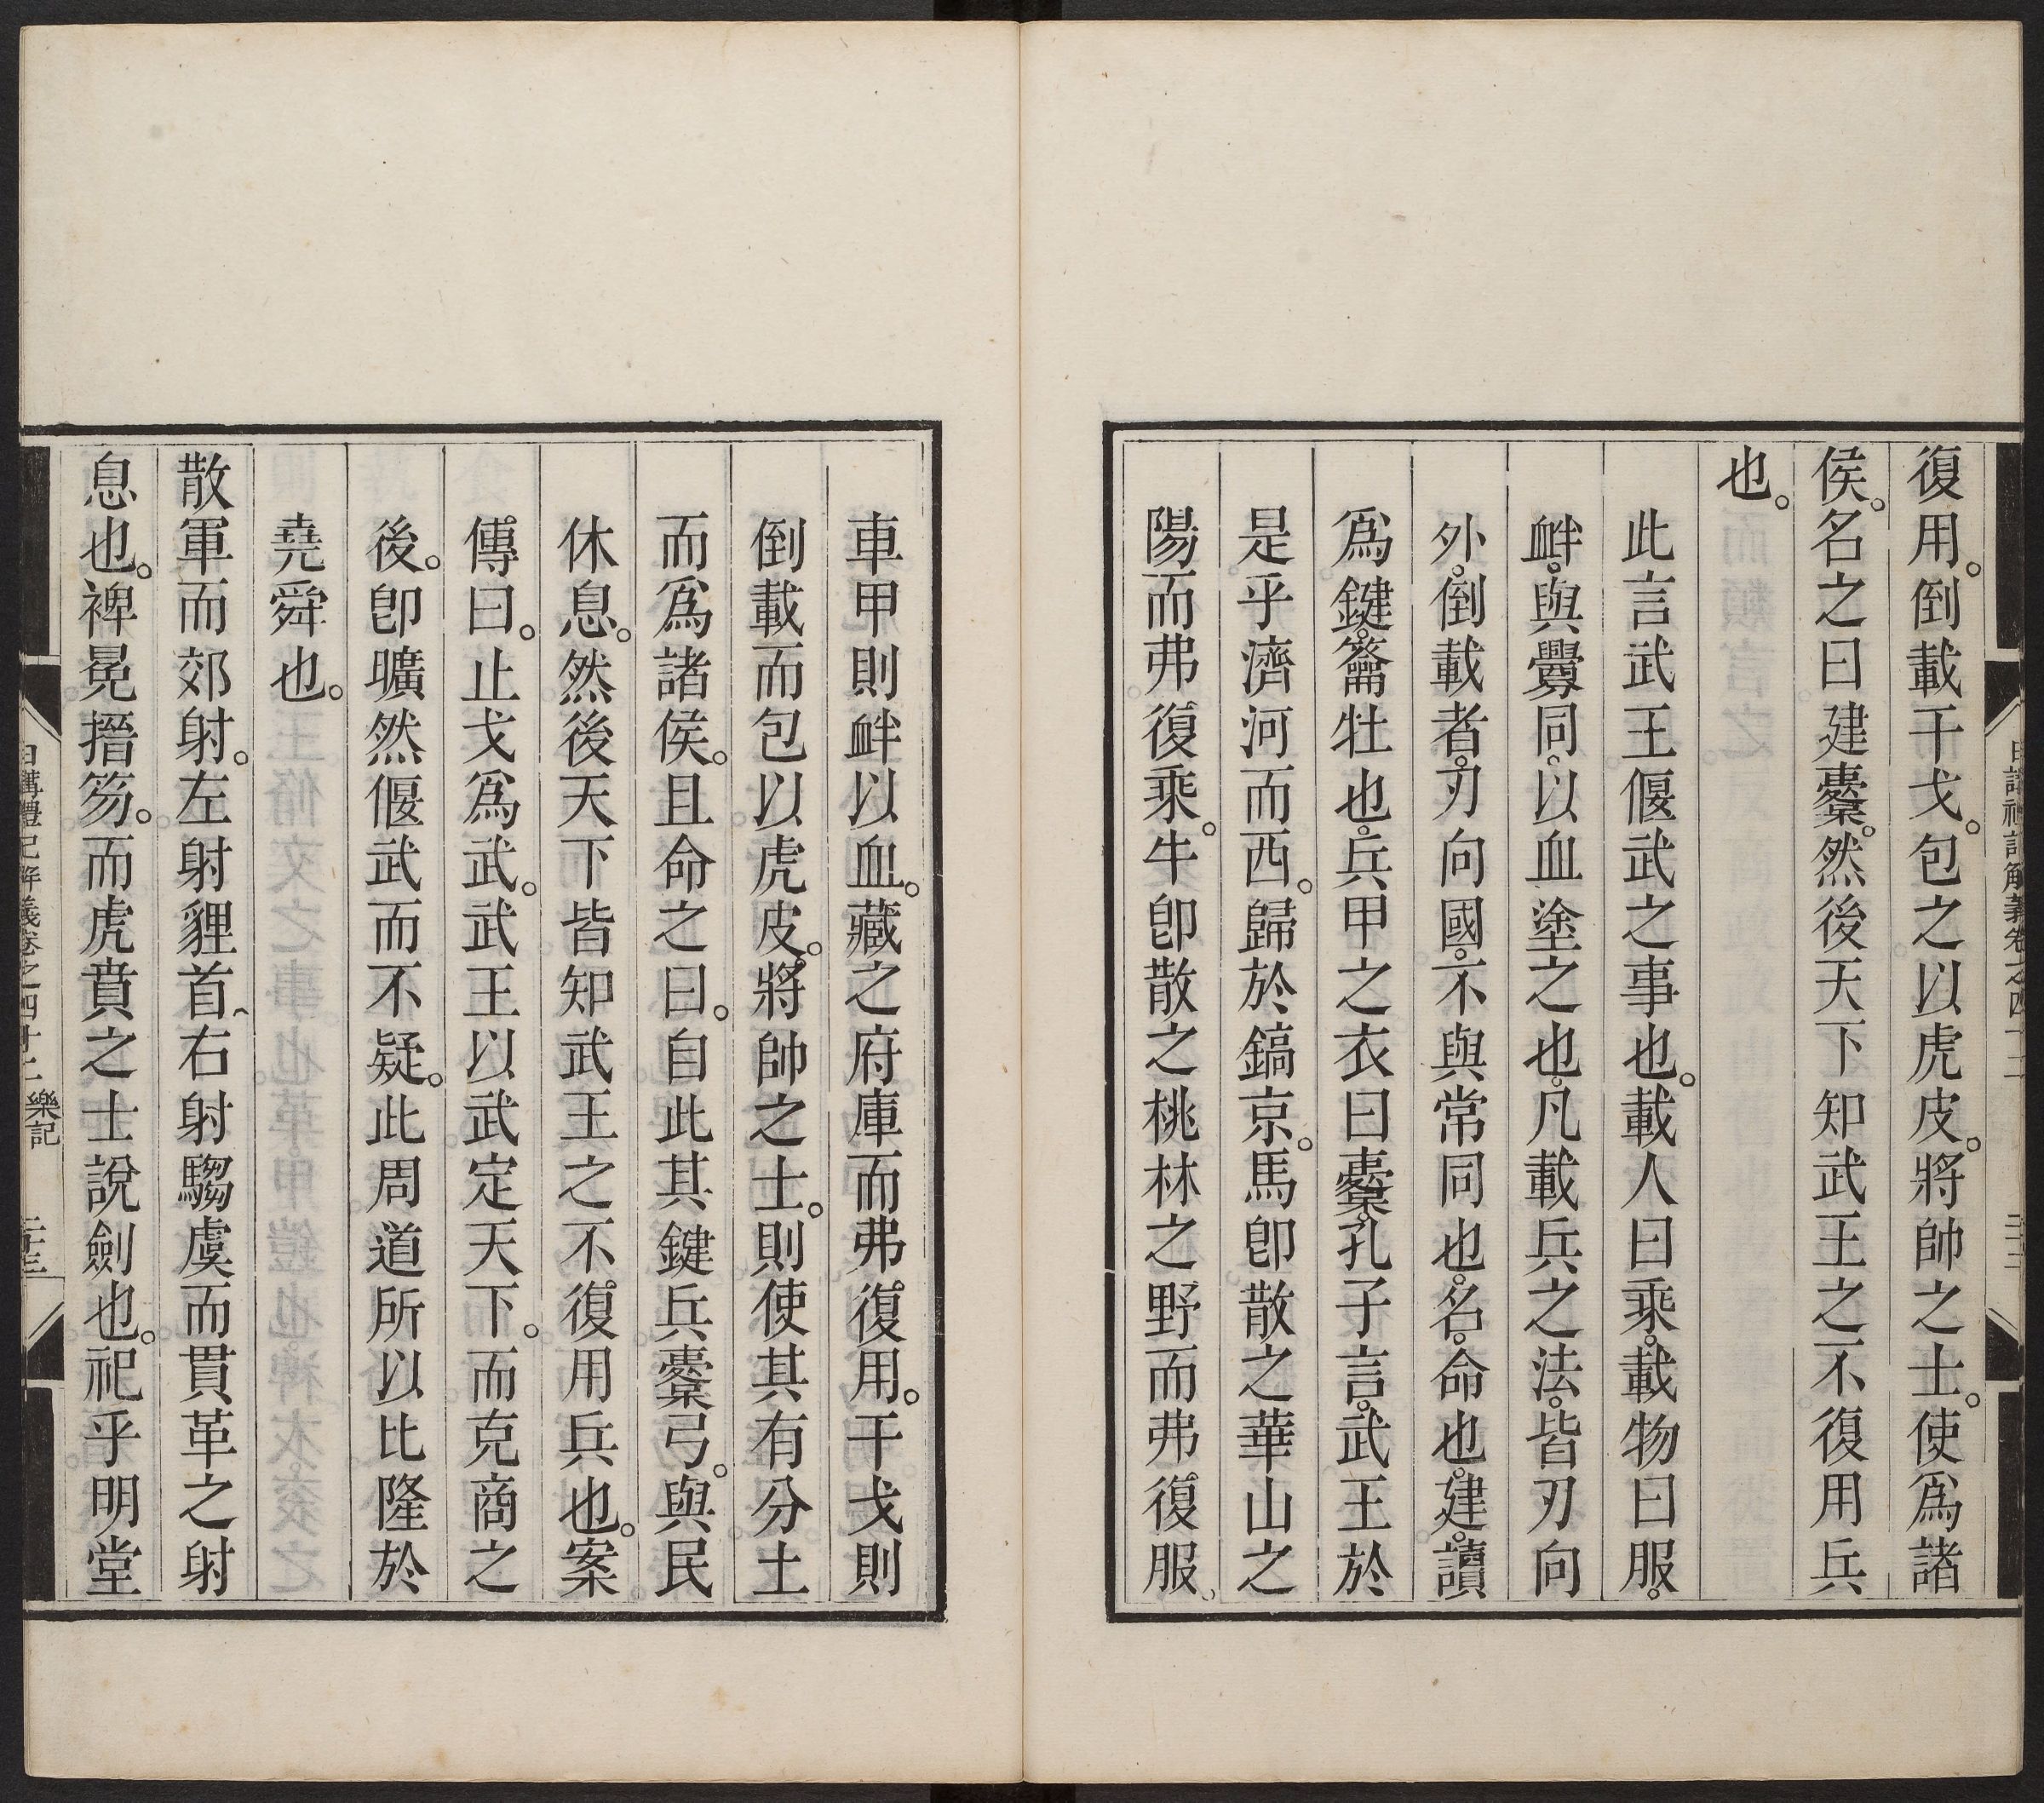 復用。倒載干戈。包之以虎皮。將帥之士。使爲諸
侯。名之曰建櫜。然後天下知武王之不復用兵
也。
此言武王偃武之事也。載人曰乘。載物曰服。
衅。與釁同。以血塗之也。凡載兵之法。皆刃向
外。倒載者。刃向國。不與常同也。名。命也。建。讀
爲鍵。籥牡也。兵甲之衣曰櫜。孔子言。武王於
是乎濟河而西。歸於鎬京。馬卽散之華山之
陽而弗復乘。牛卽散之桃林之野而弗復服、
車甲則衅以血。藏之府庫而弗復用。干戈則
倒載而包以虎皮。將帥之士。則使其有分土
而爲諸侯。且命之曰。自此其鍵兵櫜弓。與民
休息。然後天下皆知武王之不復用兵也。案
傳曰。止戈爲武。武王以武定天下。而克商之
後。卽曠然偃武而不疑。此周道所以比隆於
堯舜也。
散軍而郊射。左射貍首、右射騶虞而貫革之射
息也。裨冕搢笏。而虎賁之士說劍也。祀乎明堂
日講禮記解義卷之四十二 樂記